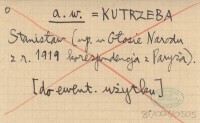 a.w. = KUTRZEBA
Stanisław (np. w Głosie Narodu
z r. 1919 korespondencja z Paryża).
[do ewent. użytku]